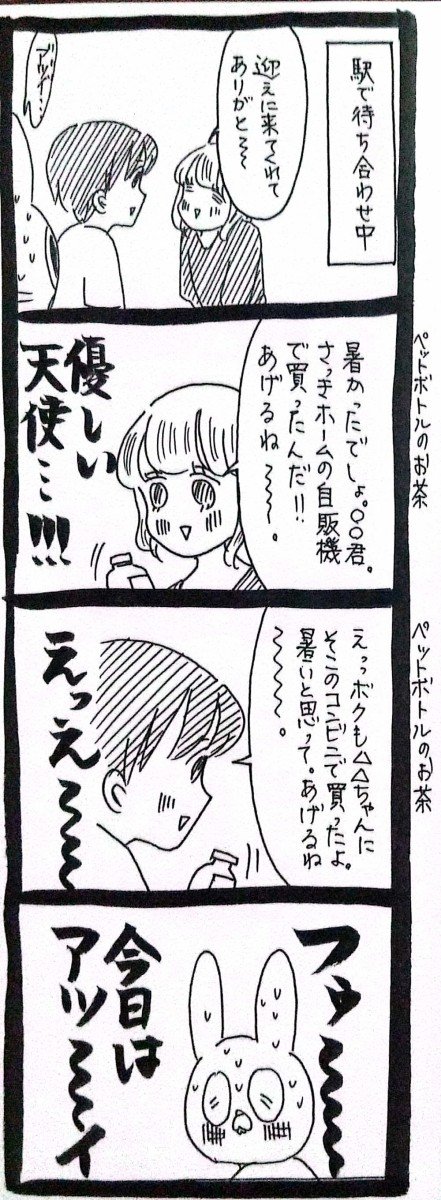 駅で待ち合わせ中
迎えに来てくれて
ありがと〜〜
アツイ…
ペットボトルのお茶
暑かったでしょ。○○君。
さっきホームの自販機
で買ったんだ!!
あげるね〜〜〜。
優しい
天使…!!!
ペットボトルのお茶
えっっボクも△△ちゃんに
そこのコンビニで買ったよ。
暑いと思って。あげるね
〜〜〜〜。
えっえ〜〜〜
フゥ〜〜〜〜
今日は
アツ〜〜〜イ